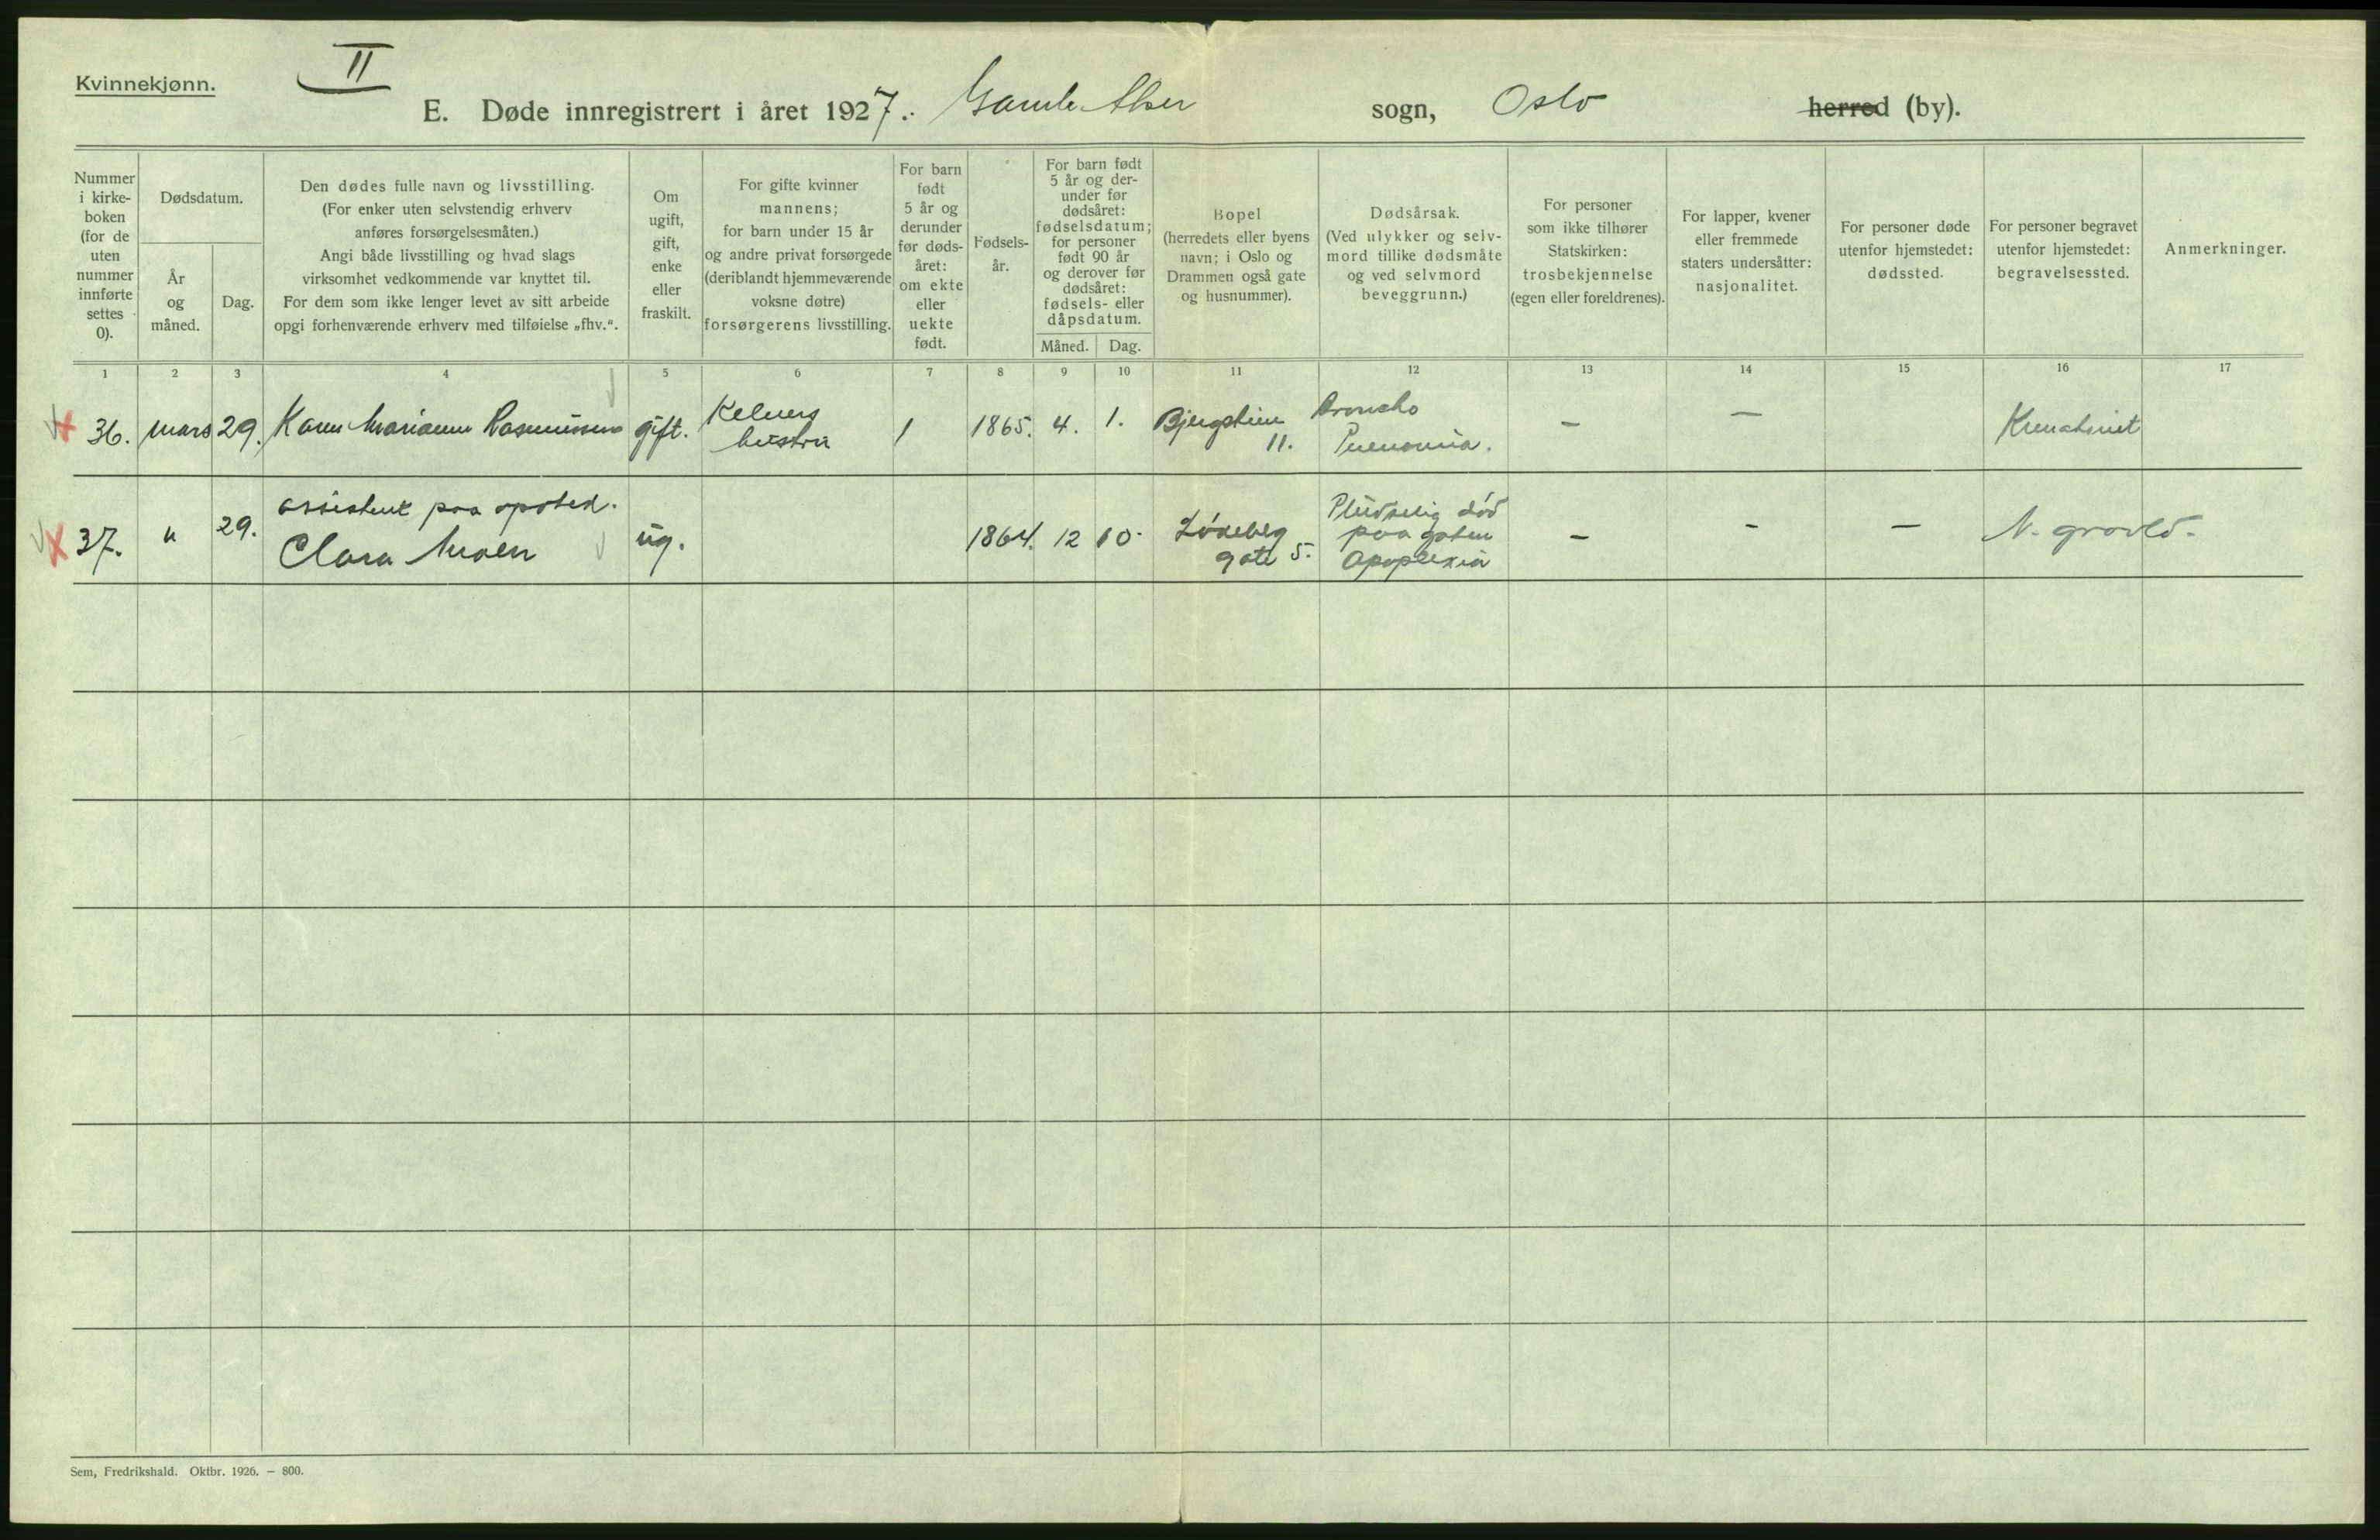 II
Kvinnekjønn.
E. Døde innregistrert i året 1927. Gamle Aker sogn, Oslo herred (by).
Nummer
i kirke-
boken
(for de
uten
nummer
innførte
settes
0).
Dødsdatum.
År
og
måned.
Dag.
Den dødes fulle navn og livsstilling.
(For enker uten selvstendig erhverv
anføres forsørgelsesmåten.)
Angi både livsstilling og hvad slags
virksomhet vedkommende var knyttet til.
For dem som ikke lenger levet av sitt arbeide
opgi forhenværende erhverv med tilføielse „fhv.“.
Om
ugift,
gift,
enke
eller
fraskilt.
For gifte kvinner
mannens;
for barn under 15 år
og andre privat forsørgede
(deriblandt hjemmeværende
voksne døtre)
forsørgerens livsstilling.
For barn
født
5 år og
derunder
før døds-
året:
om ekte
eller
uekte
født.
Fødsels-
år.
For barn født
5 år og der-
under før
dødsåret:
fødselsdatum;
for personer
født 90 år
og derover før
dødsåret:
fødsels- eller
dåpsdatum.
Måned. Dag.
Bopel
(herredets eller byens
navn; i Oslo og
Drammen også gate
og husnummer).
Dødsårsak.
(Ved ulykker og selv-
mord tillike dødsmåte
og ved selvmord
beveggrunn.)
For personer
som ikke tilhører
Statskirken:
trosbekjennelse
(egen eller foreldrenes).
For lapper, kvener
eller fremmede
staters undersåtter:
nasjonalitet.
For personer døde
utenfor hjemstedet:
dødssted.
For personer begravet
utenfor hjemstedet:
begravelsessted.
Anmerkninger.
1 2 3 4 5 6 7 8 9 10 11 12 13 14 15 16 17
36. mars 29. Karen Marianne Rasmussen gift. Kelners
hustru
1 1865. 4. 1. Bjergstien
11.
Broncho
Pneumonia.
— — Krematoriet
37. " 29. assistent paa apothek.
Clara Moen
ug. 1864. 12 10. Løkeberg
gate 5.
Pludselig død
paa gaten
Apoplexia
– – – N. gravld.
Sem, Fredrikshald. Oktbr. 1926. — 800.